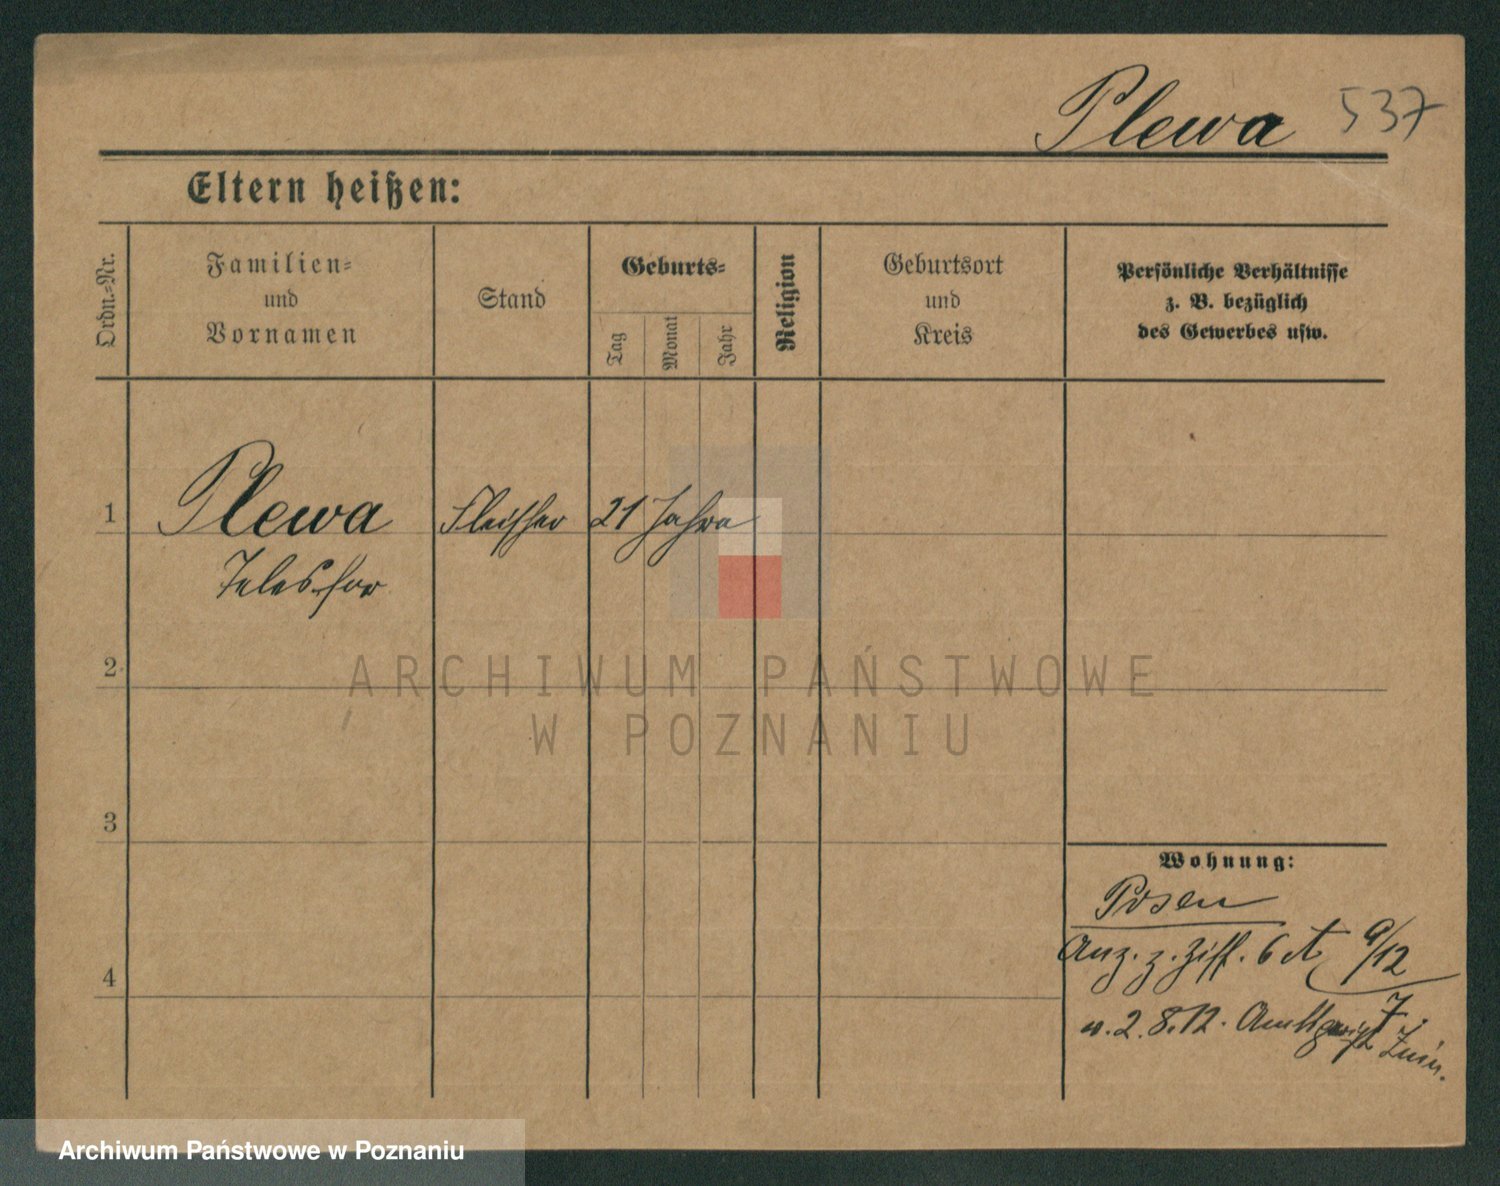 Plewa 537
Eltern heißen:
Ordn.-Nr.
Familien-
und
Vornamen
Stand
Geburts-
Tag
Monat
Jahr
Religion
Geburtsort
und
Kreis
Persönliche Verhältnisse
z. B. bezüglich
des Gewerbes usw.
1 Plewa Fleischer 21 Jahre
Telesfor
2
ARCHIWUM PAŃSTWOWE
W POZNANIU
3
Wohnung:
Posen
Anz. z. Ziff. 6 9/12
4
v. 2.8.12. Amtsgericht
Archiwum Państwowe w Poznaniu